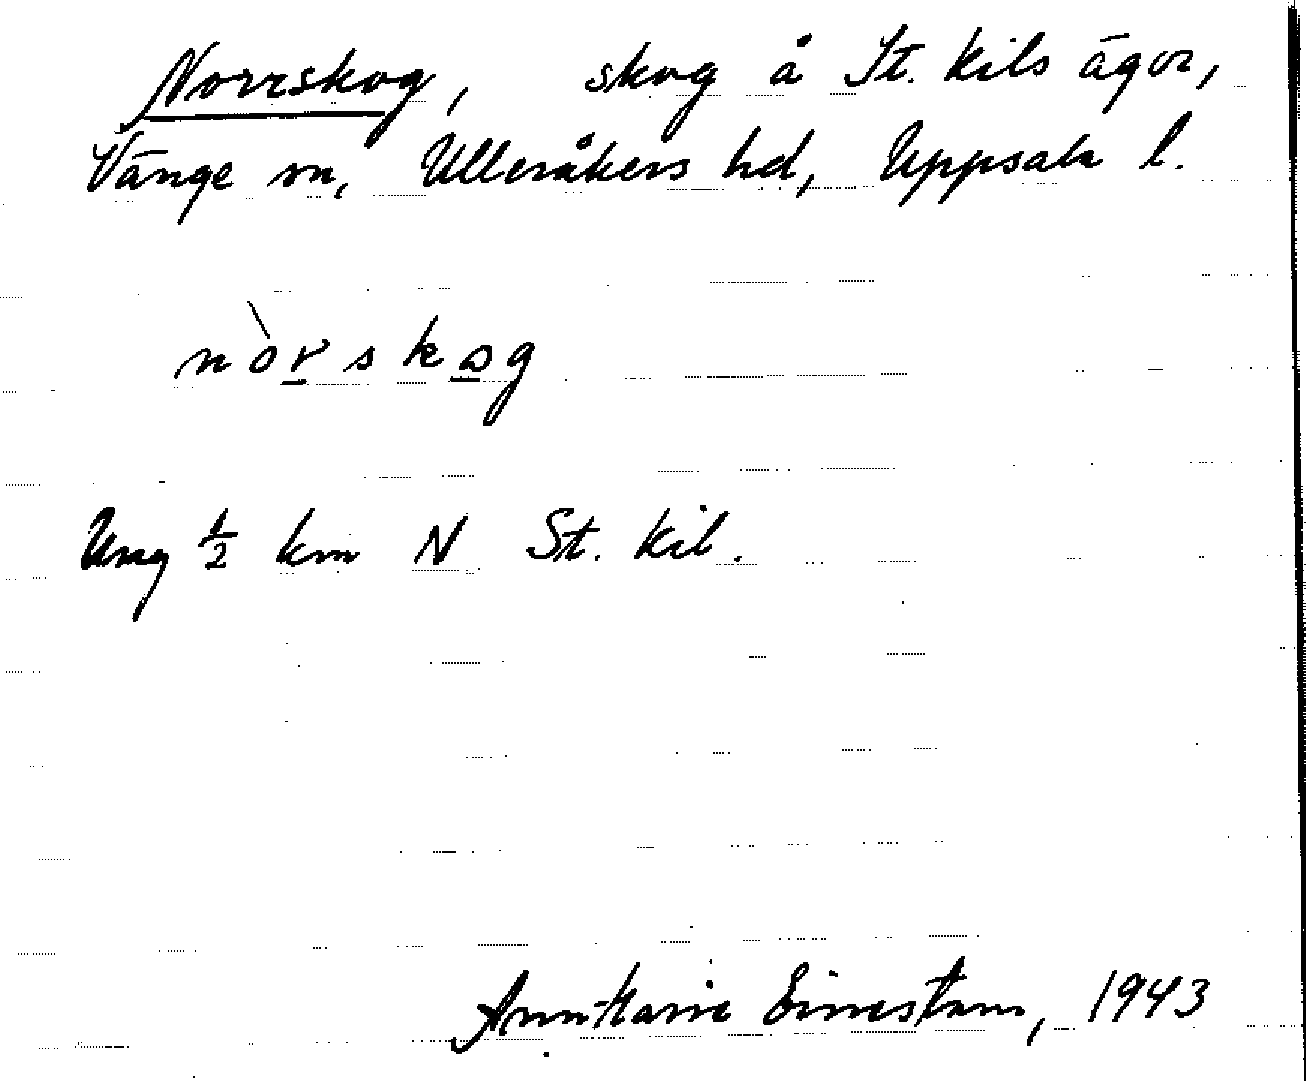 Norrskog, skog å St. Kils ägor,
Vänge sn, Ulleråkers hd, Uppsala l.
nòrskog
Ung ½ km N St. Kil.
Ann-Marie Einestam, 1943